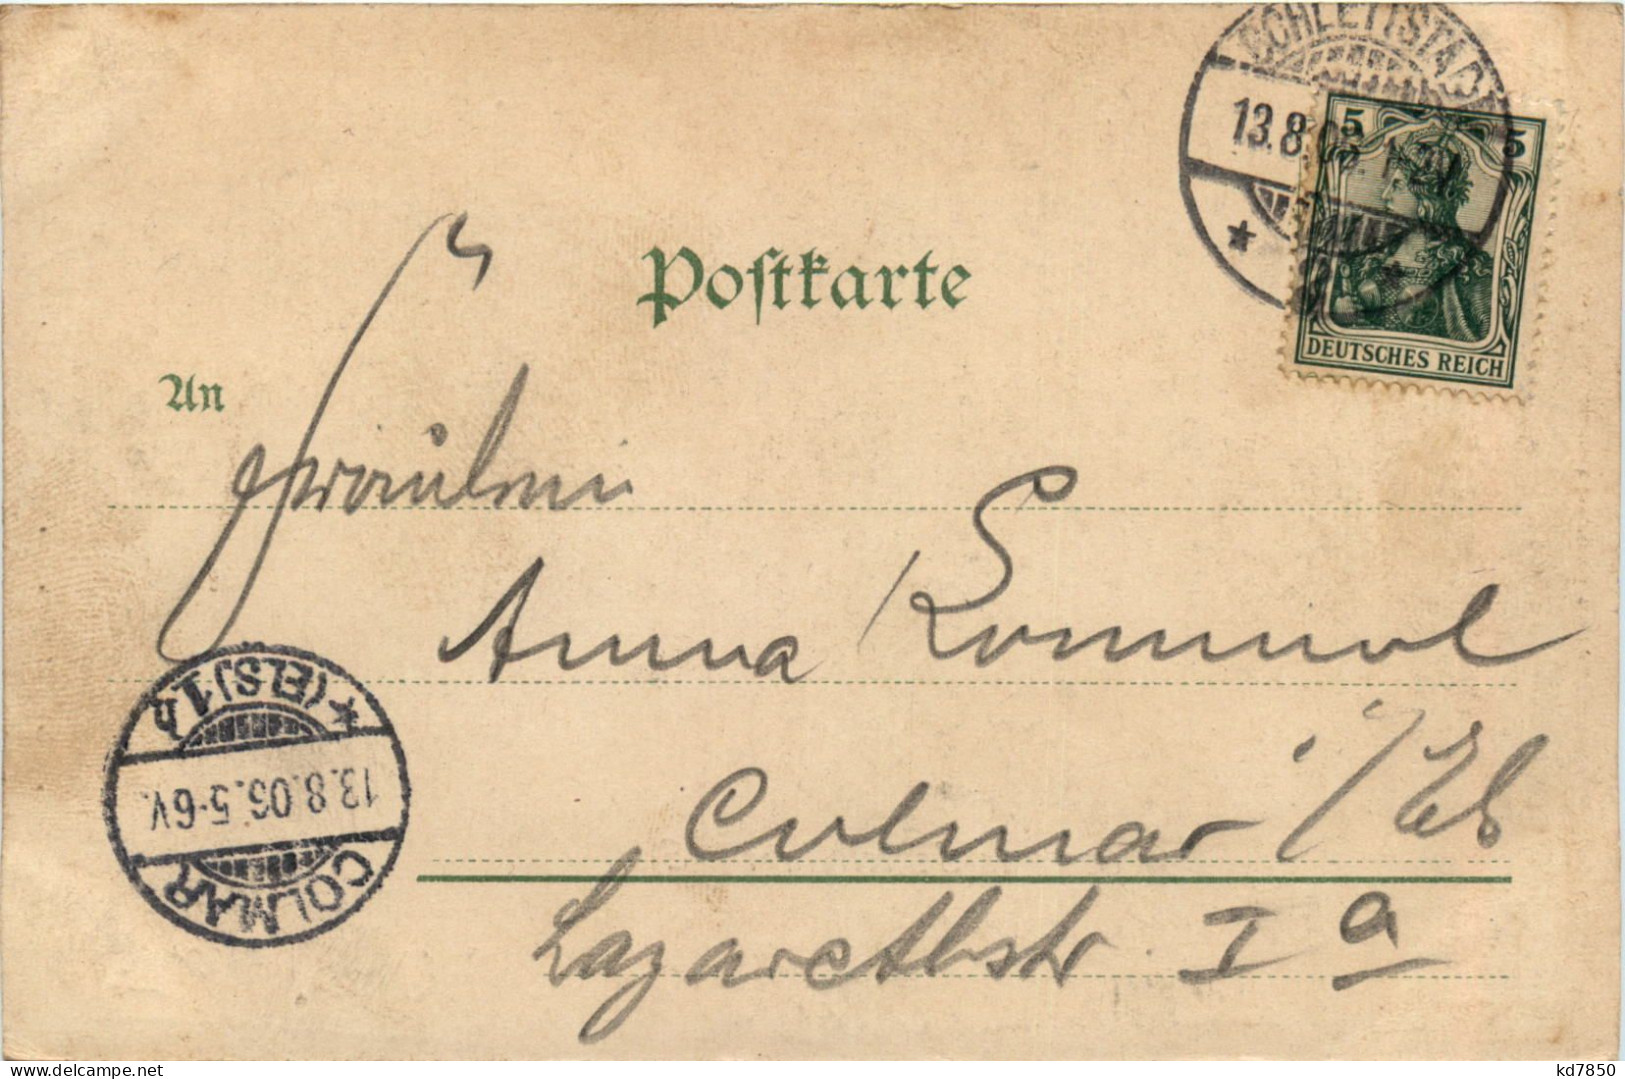 SCHLETTSTADT
13.8.06.
5 5
DEUTSCHES REICH
Postkarte
An
Fräulein
Anna Rommel
Colmar i/Els
Lazarethstr. I a
* (ELS) 1 h
13.8.06. 5-6 V.
COLMAR
kd7850